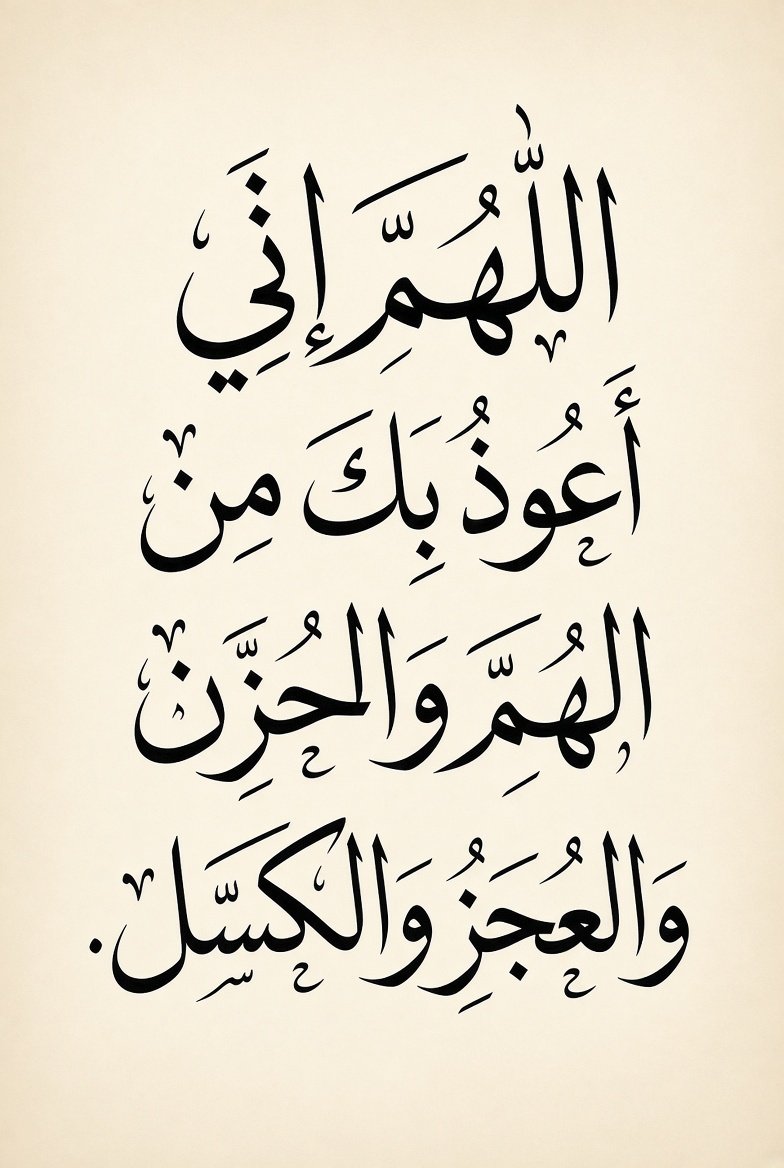 اللّٰهُمَّ إِنِّي
أَعُوذُ بِكَ مِنْ
الهُمِّ وَالحُزَّنِ
وَالعُجَزِ وَالكَسَّلِ.